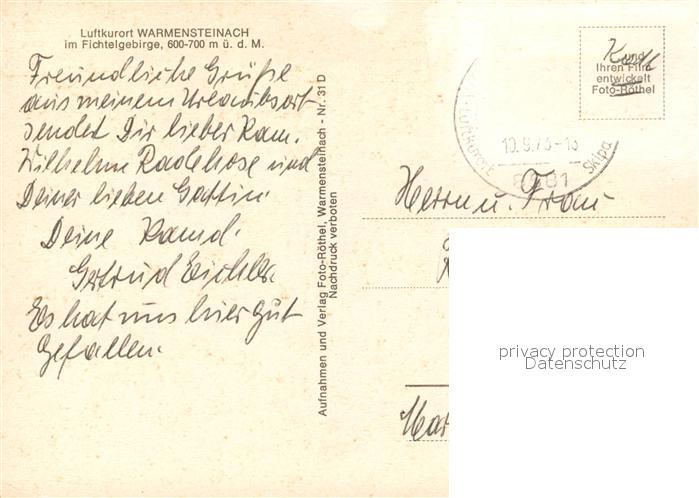 Luftkurort WARMENSTEINACH
im Fichtelgebirge, 600-700 m ü. d. M.
Freundliche Grüße
aus meinem Urlaubsort
sendet Dir lieber Kam.
Wilhelm und
Deiner lieben Gattin
Deine Kamd.
Gertrud Eichler.
Es hat uns hier gut
gefallen.
Aufnahmen und Verlag Foto-Röthel, Warmensteinach - Nr. 31 D
Nachdruck verboten
und
Ihren Film
entwickelt
Foto-Röthel
Luftkurort
8581
Herrn u. Frau
privacy protection
Datenschutz
Mar